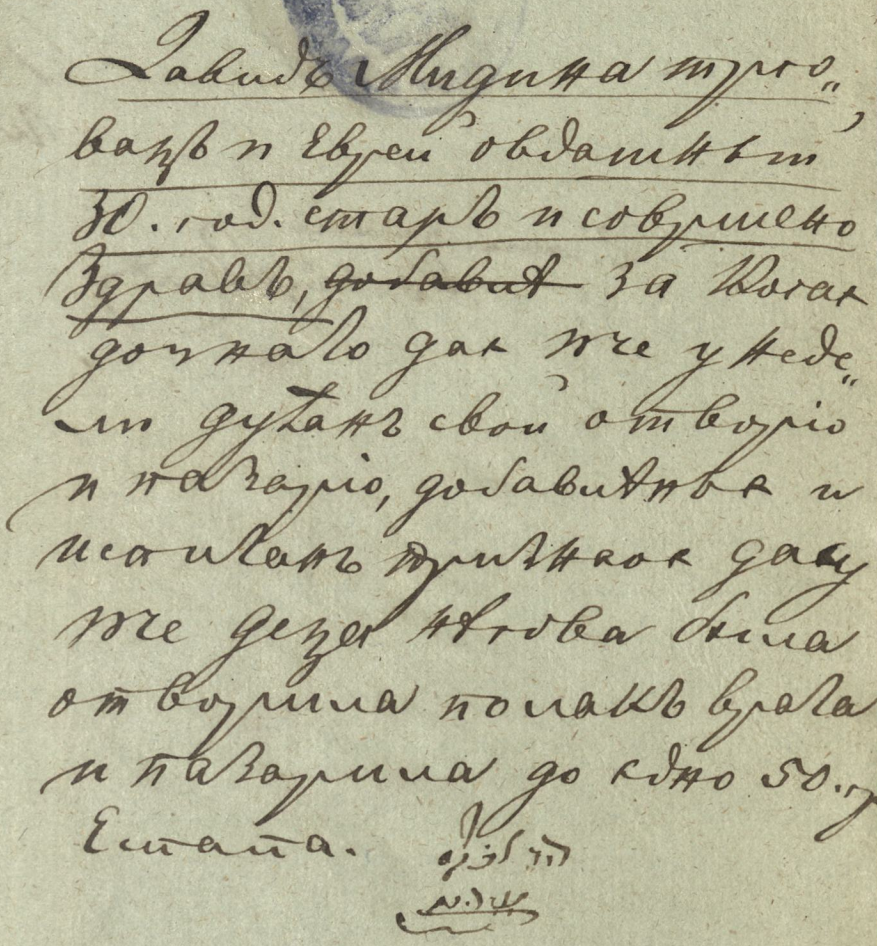 Давидъ Мидина трго„
вацъ и Еврей овдашный
30. год. старъ и совршено
Здравъ, добавит за
дознаћо да є у неде„
ли дућанъ свой отворіо
и пазаріо, добавитъ є и
испитанъ признає да су
є деца нѣгова была
отворила полакъ врата
и пазарила до єдно 50. гр
Еспапа.